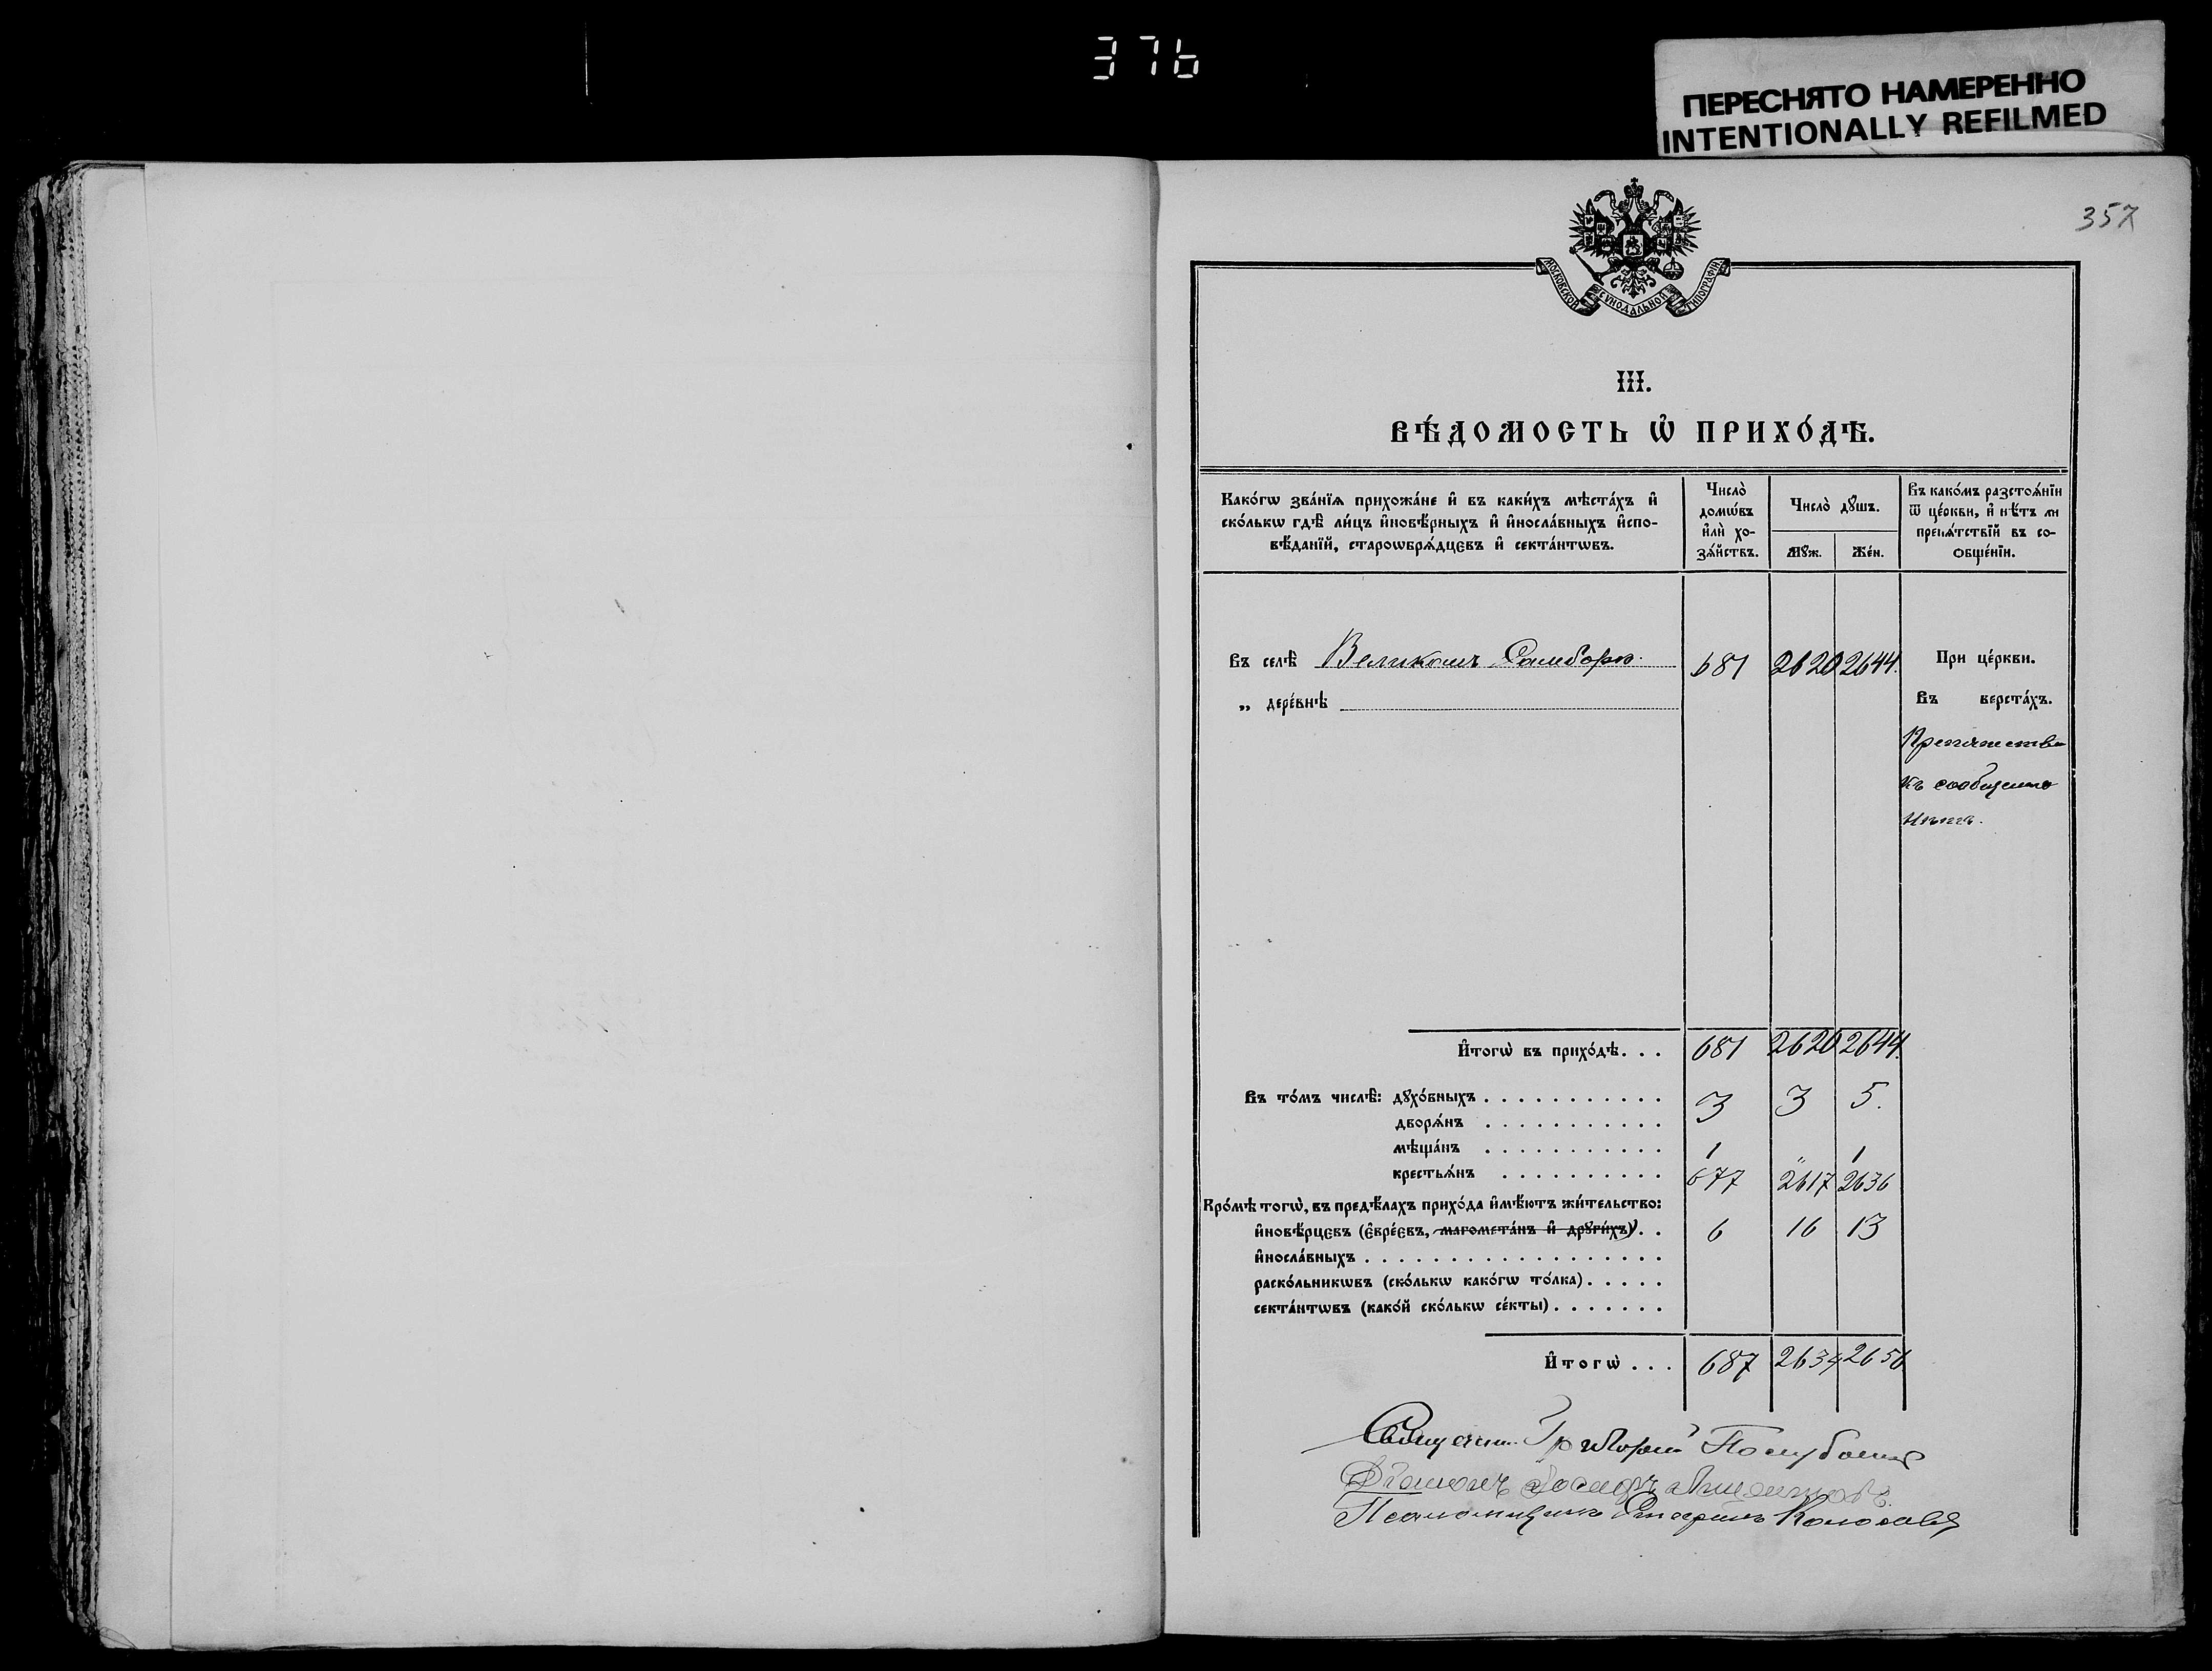 376
ПЕРЕСНЯТО НАМЕРЕННО
INTENTIONALLY REFILMED
357
МОСКОВСКОЙ СѴНОДАЛЬНОЙ ТИПОГРАФІИ
III.
ВѢ́ДОМОСТЬ Ѡ҆ ПРИХО́ДѢ.
Како́гѡ зва́нїѧ прихожа́не и҆ въ каки́хъ мѣста́хъ и҆
ско́лькѡ гдѣ̀ ли́цъ и҆новѣ́рныхъ и҆ и҆носла́вныхъ и҆спо-
вѣ́данїй, староѡбрѧ́дцєвъ и҆ секта́нтѡвъ.
Число̀
домѡ́въ
и҆лѝ хо-
зѧ́йствъ.
Число̀ дꙋ́шъ.
Мꙋ́ж.
Же́н.
Въ како́мъ разстоѧ́нїи
ѿ це́ркви, и҆ нѣ́тъ ли
препѧ́тствїй въ со-
ѻбще́нїи.
Въ селѣ̀ Великомъ Самборѣ. 681 2620 2644. При це́ркви.
„ дере́внѣ Въ верста́хъ.
Препятствій
къ сообщенію
нѣтъ.
И҆тогѡ̀ въ прихо́дѣ. . . 681 2620 2644.
Въ то́мъ числѣ̀: дꙋхо́вныхъ . . . . . . . . . . . 3 3 5.
дворѧ́нъ . . . . . . . . . . .
мѣща́нъ . . . . . . . . . . . 1 " 1
крестьѧ́нъ . . . . . . . . . . 677 2617 2636
Кро́мѣ тогѡ̀, въ предѣ́лахъ прихо́да и҆мѣ́ютъ жи́тельство:
и҆новѣ́рцєвъ (є҆вре́євъ, магомета́нъ и҆ дрꙋги́хъ) . . 6 16 13
и҆носла́вныхъ . . . . . . . . . . . . . . . . . .
раско́льникѡвъ (ско́лькѡ како́гѡ то́лка) . . . . .
секта́нтѡвъ (како́й ско́лькѡ се́кты) . . . . . . .
И҆тогѡ̀ . . . 687 2634 2656
Священн. Григорій
Діаконъ Іосифъ
Псаломщикъ